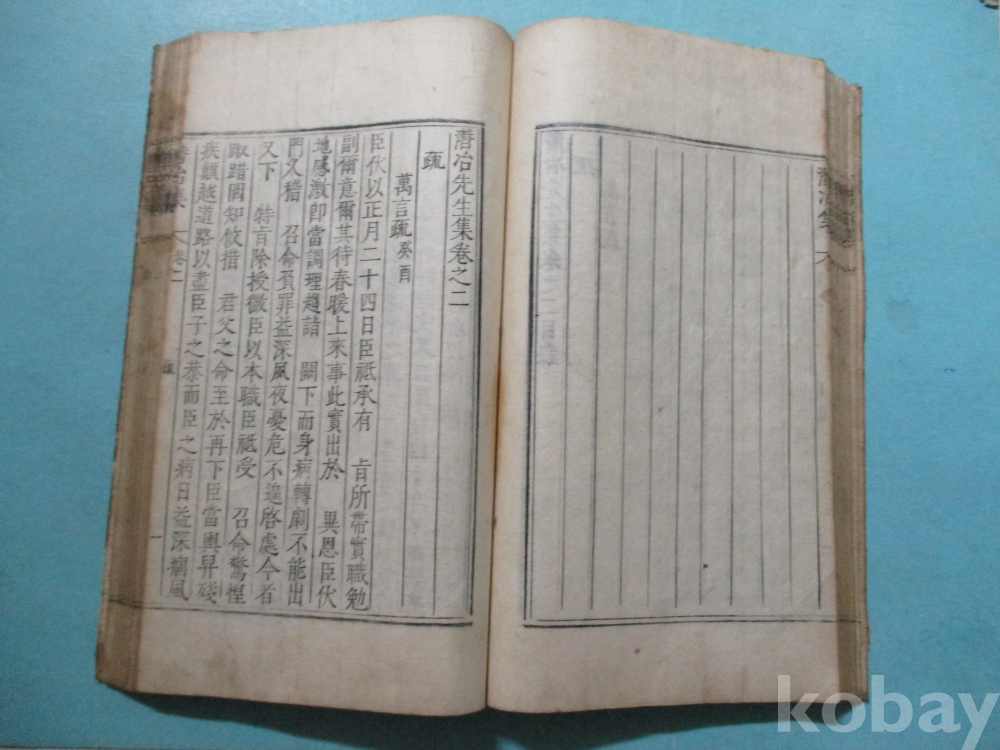 潛冶集
潛冶先生集卷之二
疏
萬言疏 癸酉
臣伏以正月二十四日臣祗承有 旨所帶實職勉
副爾意爾其待春暖上來事此實出於 異恩臣伏
地感激卽當調理趨詣 闕下而身病轉劇不能出
門又稽 召命負罪益深夙夜憂危不遑啓處今者
又下 特旨除授微臣以本職臣祗受 召命驚惶
踧踖罔知攸措 君父之命至於再下臣當輿舁殘
疾顚越道路以盡臣子之恭而臣之病日益深痼風
潛冶集 卷二
一
kobay